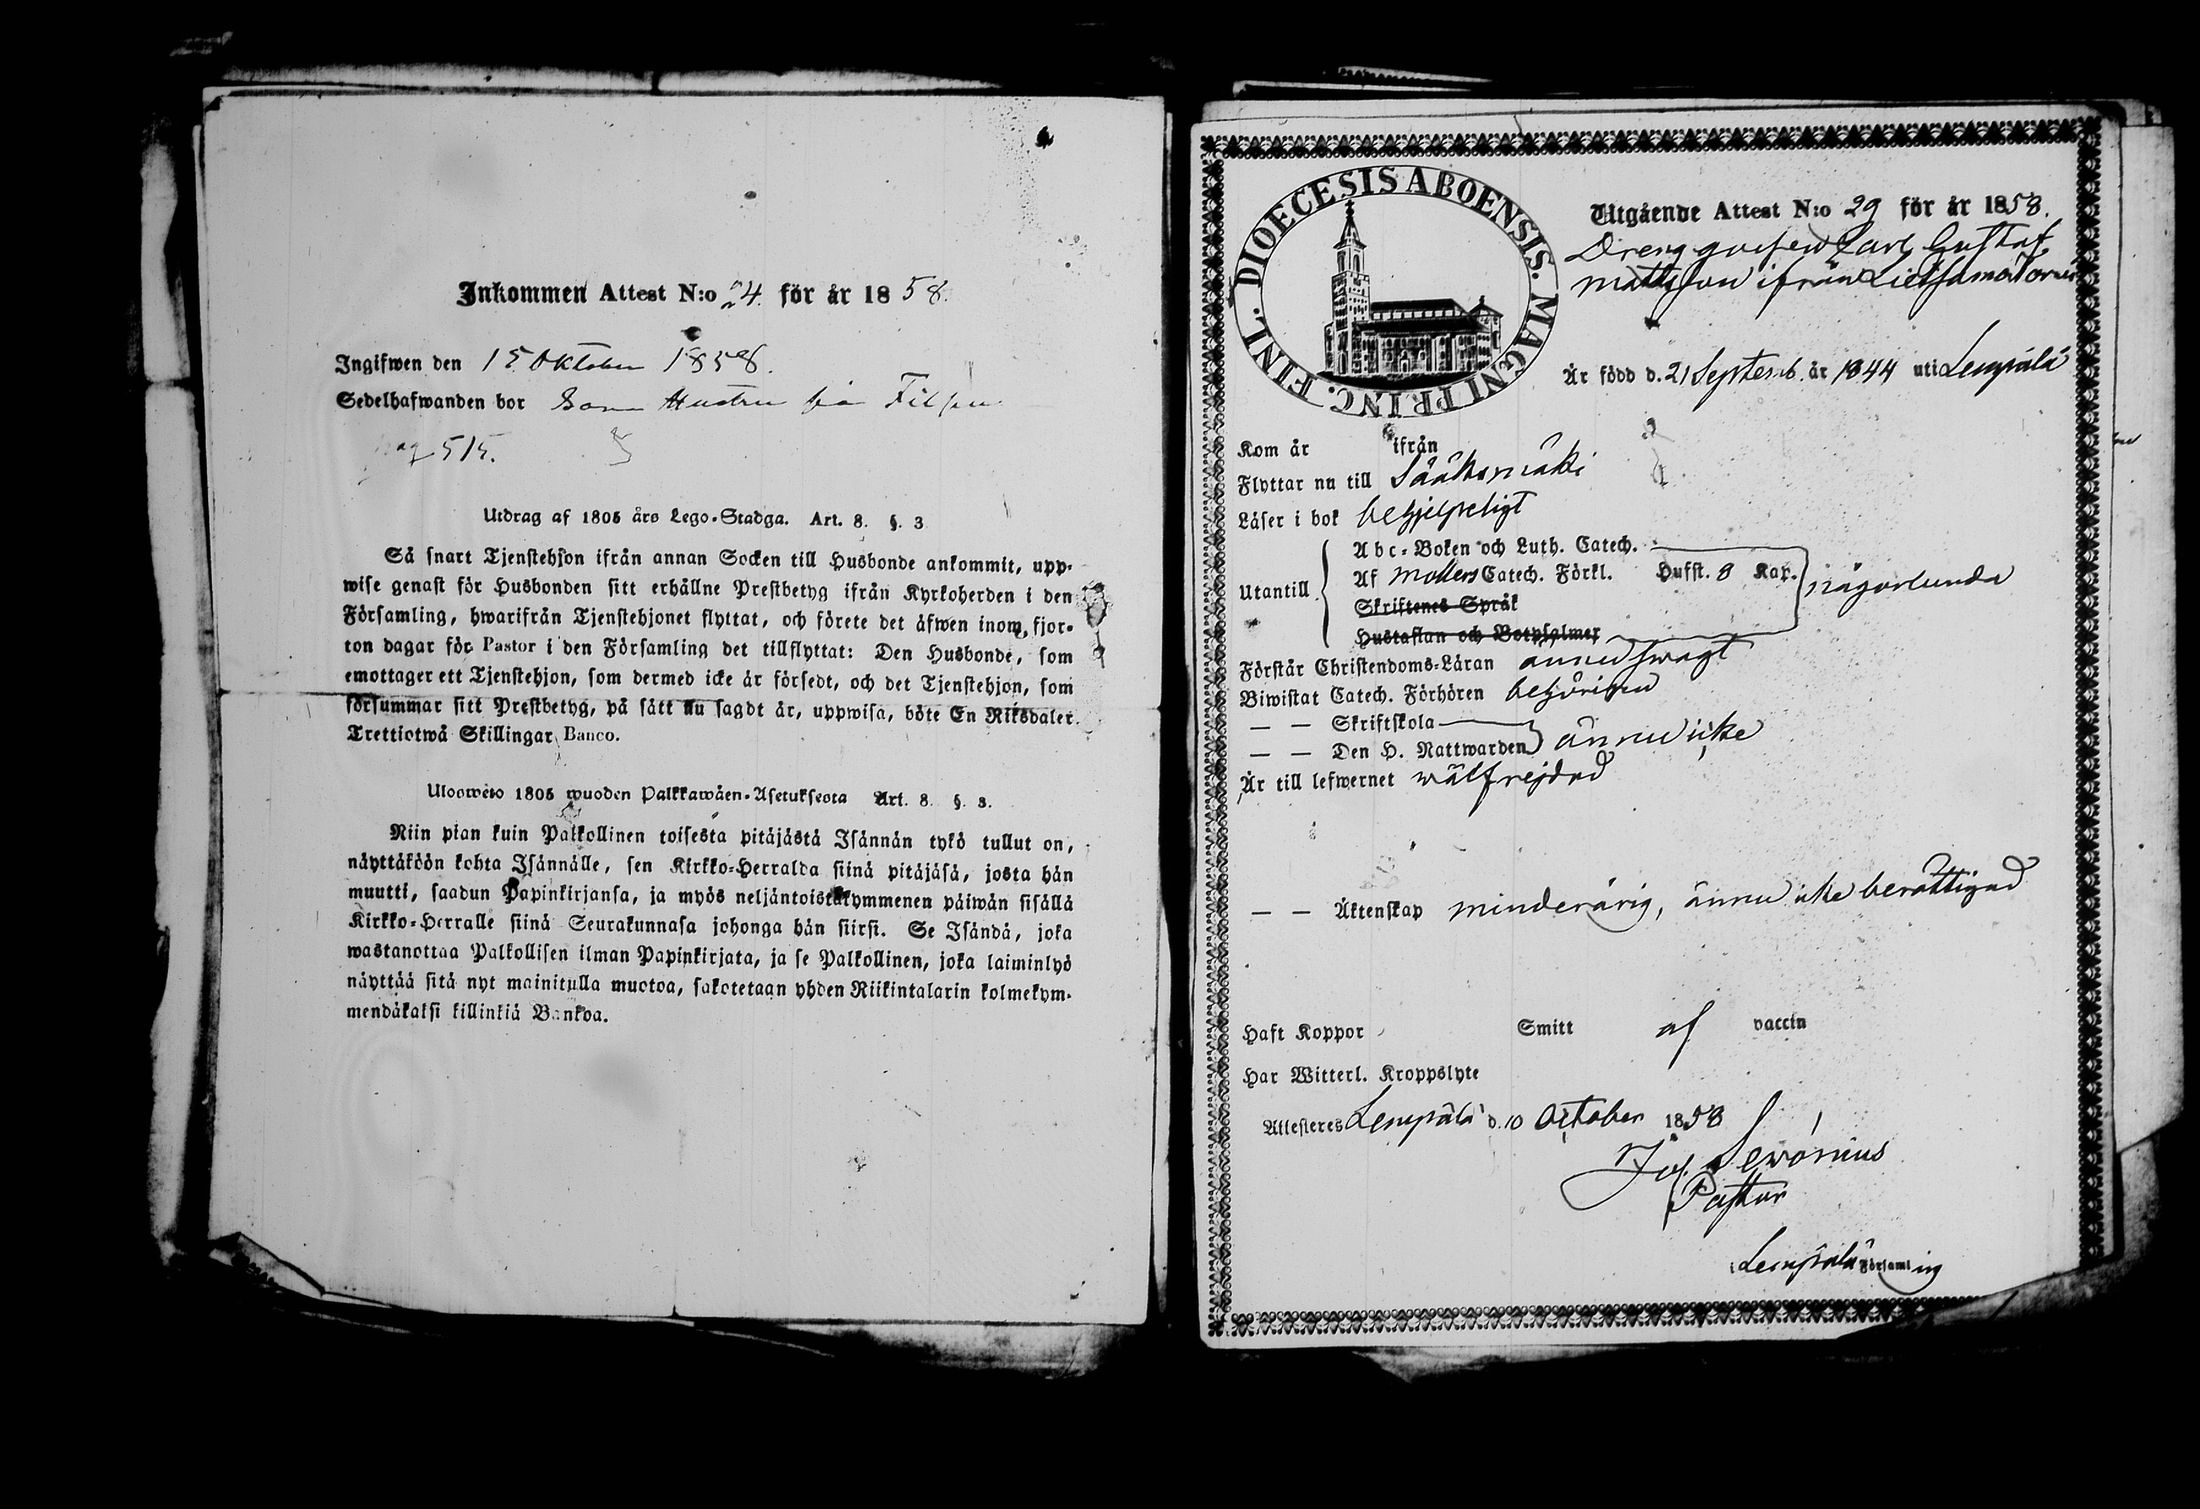 Inkommen Attest N:o 24. för år 1858.
Ingifwen den 15 Oktober 1858.
Sedelhafwanden bor
pag 515.
Utdrag af 1805 års Lego-Stadga. Art. 8. §. 3
Så snart Tjenstehjon ifrån annan Socken till Husbonde ankommit, upp-
wise genast för Husbonden sitt erhållne Prestbetyg ifrån Kyrkoherden i den
Församling, hwarifrån Tjenstehjonet flyttat, och förete det äfwen inom fjor-
ton dagar för Pastor i den Församling det tillflyttat: Den Husbonde, som
emottager ett Tjenstehjon, som dermed icke är försedt, och det Tjenstehjon, som
försummar sitt Prestbetyg, på sätt nu sagdt är, uppwisa, böte En Riksdaler
Trettiotwå Skillingar Banco.
Ulosweto 1805 wuoden Palkkawäen-Asetuksesta Art. 8. §. 3.
Niin pian kuin Palkollinen toisesta pitäjästä Isännän tykö tullut on,
näyttäköön kohta Isännälle, sen Kirkko-Herralda siinä pitäjäsä, josta hän
muutti, saadun Papinkirjansa, ja myös neljäntoistakymmenen päiwän sisällä
Kirkko-Herralle siinä Seurakunnasa johonga hän siirsi. Se Isändä, joka
wastanottaa Palkollisen ilman Papinkirjata, ja se Palkollinen, joka laiminlyö
näyttää sitä nyt mainitulla muotoa, sakotetaan yhden Riikintalarin kolmekym-
mendäkaksi killinkiä Bankoa.
DIOECESIS ABOENSIS. MAGNI PRINC. FINL.
Utgående Attest N:o 29 för år 1858.
Dreng gossen Carl Gustaf
Mattsson ifrån
Är född d. 21 Septemb. år 1844 uti Lempälä
Kom år ifrån
Flyttar nu till Sääksmäki
Läser i bok behjelpeligt
Abc-Boken och Luth. Catech.
Utantill Af Mollers Catech. Förkl. Hufst. 8 Kap. någorlunda
Skriftenes Språk
Hustaflan och Botpsalmer
Förstår Christendoms-Läran ännu swagt
Biwistat Catech. Förhören behörigen
— — Skriftskola
— — Den H. Nattwarden ännu icke
Är till lefwernet wälfrejdad
— — Äktenskap minderårig, ännu icke berättigad
Haft Koppor Smitt af vaccin
Har Witterl. Kroppslyte
Attesteres Lempälä d. 10 October 1858
Jos. Sewonius
Pastor
Lempälä Församling